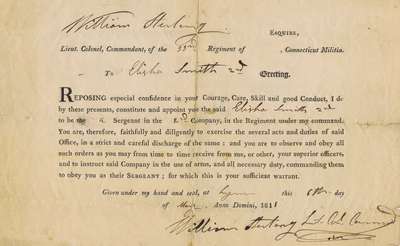 William
ESQUIRE,
Lieut. Colonel, Commandant, of the 33rd Regiment of , Connecticut Militia.
To Elisha Smith 2nd Greeting.
REPOSING especial confidence in your Courage, Care, Skill and good Conduct, I do
by these presents, constitute and appoint you the said Elisha Smith 2nd
to be a Sergeant in the Company, in the Regiment under my command.
You are, therefore, faithfully and diligently to exercise the several acts and duties of said
Office, in a strict and careful discharge of the same: and you are to observe and obey all
such orders as you may from time to time receive from me, or other, your superior officers,
and to instruct said Company in the use of arms, and all necessary duty, commanding them
to obey you as their SERGEANT; for which this is your sufficient warrant.
Given under my hand and seal, at Lyme this day
of Anno Domini, 1811
William Lieut. Col. Command